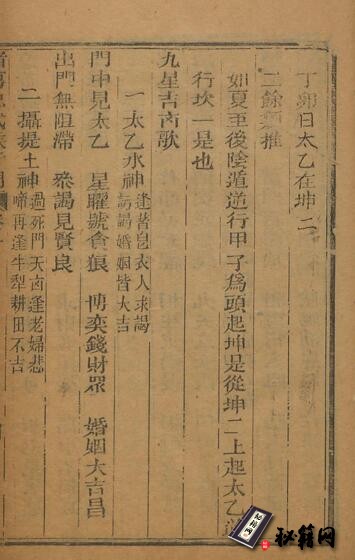 丁卯日太乙在坤二
二餘類推
如夏至後陰遁逆行甲子爲頭起坤是從坤二上起太乙
行坎一是也
九星吉凶歌
一太乙水神逢著皂衣人求謁
謁婚姻皆大吉
門中見太乙 星曜號貪狼 博奕錢財眾 婚姻大吉昌
出門無阻滯 叅謁見賢良
二攝提土神過死門天囪逢老婦悲
啼再逢牛犁耕田不吉
秘籍网
秘籍网